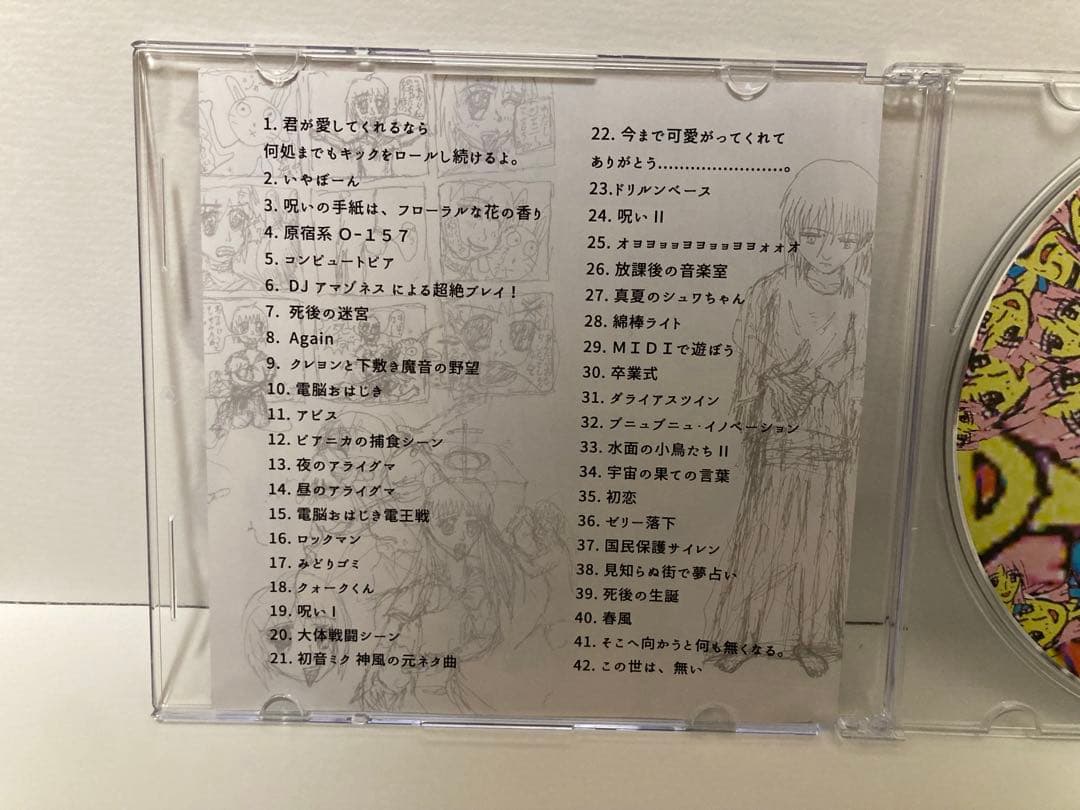 1. 君が愛してくれるなら
何処までもキックをロールし続けるよ。
2. いやぼーん
3. 呪いの手紙は、フローラルな花の香り
4. 原宿系 O-157
5. コンピュートピア
6. DJ アマゾネス による超絶プレイ！
7. 死後の迷宮
8. Again
9. クレヨンと下敷き魔音の野望
10. 電脳おはじき
11. アビス
12. ピアニカの捕食シーン
13. 夜のアライグマ
14. 昼のアライグマ
15. 電脳おはじき電王戦
16. ロックマン
17. みどりゴミ
18. クォークくん
19. 呪い I
20. 大体戦闘シーン
21. 初音ミク 神風の元ネタ曲
22. 今まで可愛がってくれて
ありがとう........................。
23.ドリルンベース
24. 呪い II
25. ォョョョョョョョョョョォォォ
26. 放課後の音楽室
27. 真夏のシュワちゃん
28. 綿棒ライト
29. ＭＩＤＩで遊ぼう
30. 卒業式
31. ダライアスツイン
32. プニュプニュ・イノベーション
33. 水面の小鳥たち II
34. 宇宙の果ての言葉
35. 初恋
36. ゼリー落下
37. 国民保護サイレン
38. 見知らぬ街で夢占い
39. 死後の生誕
40. 春風
41. そこへ向かうと何も無くなる。
42. この世は、無い